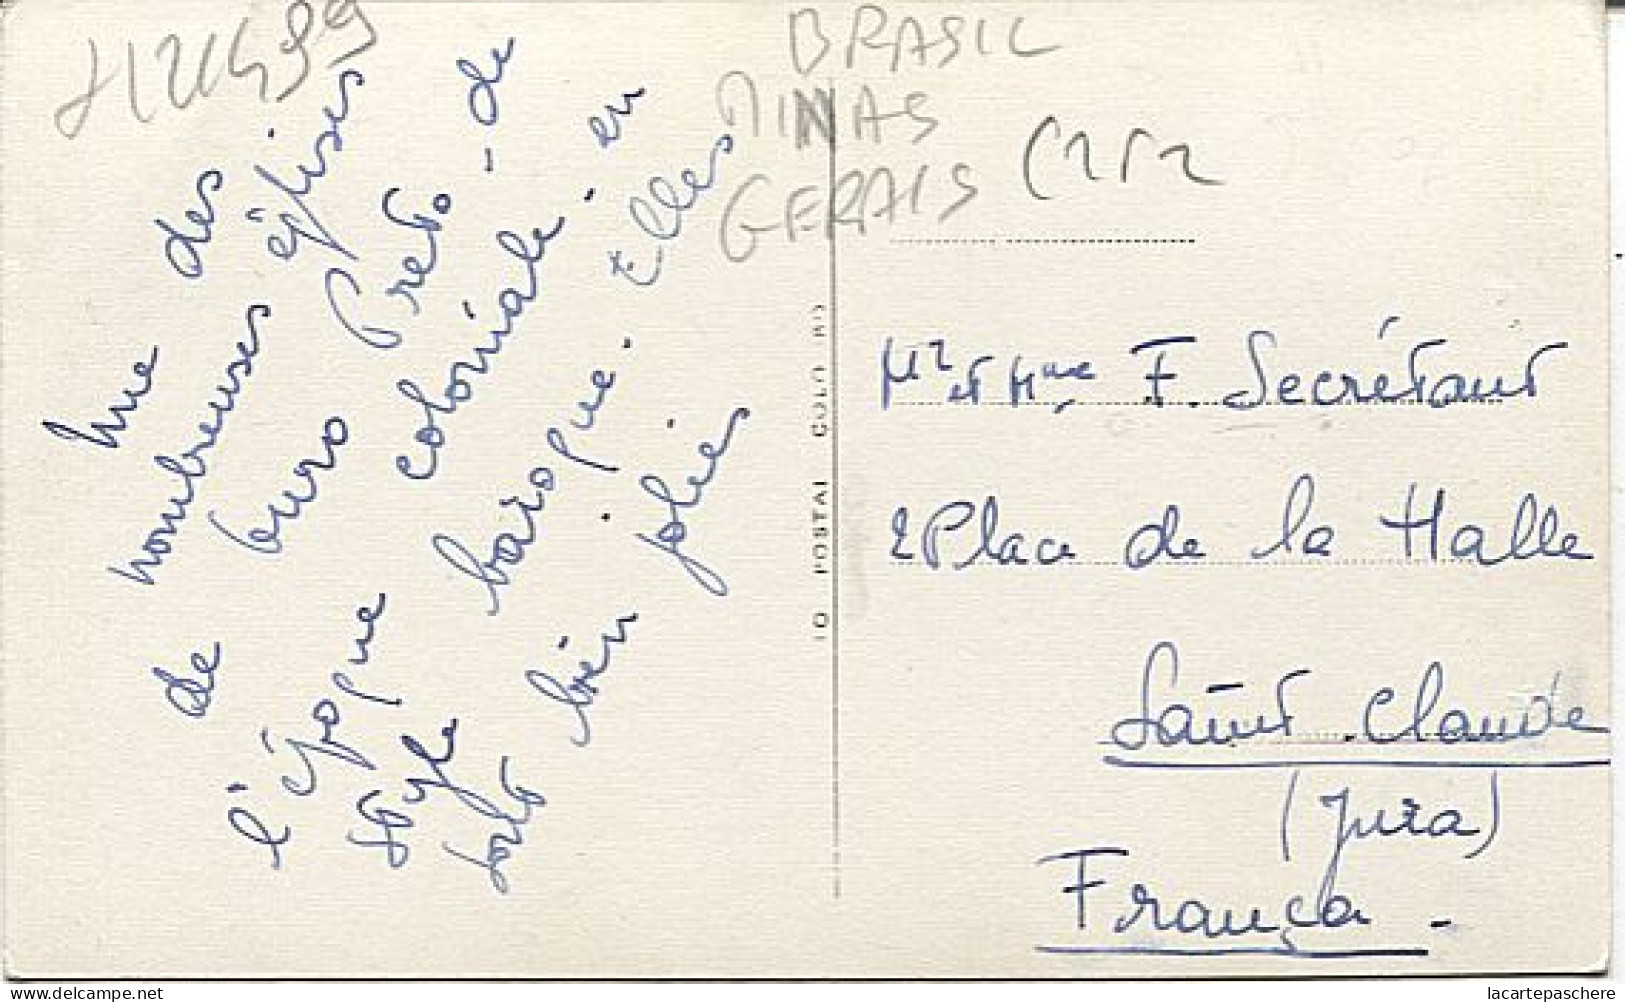 BRASIL
MINAS
GERAIS
Une des
nombreuses églises
de Ouro Preto - de
l'époque coloniale - en
style baroque. Elles
sont bien jolies
POSTAL COLO
Mr et Mme F. Secrétant
2 Place de la Halle
Saint Claude
(Jura)
França -
lacartepaschere